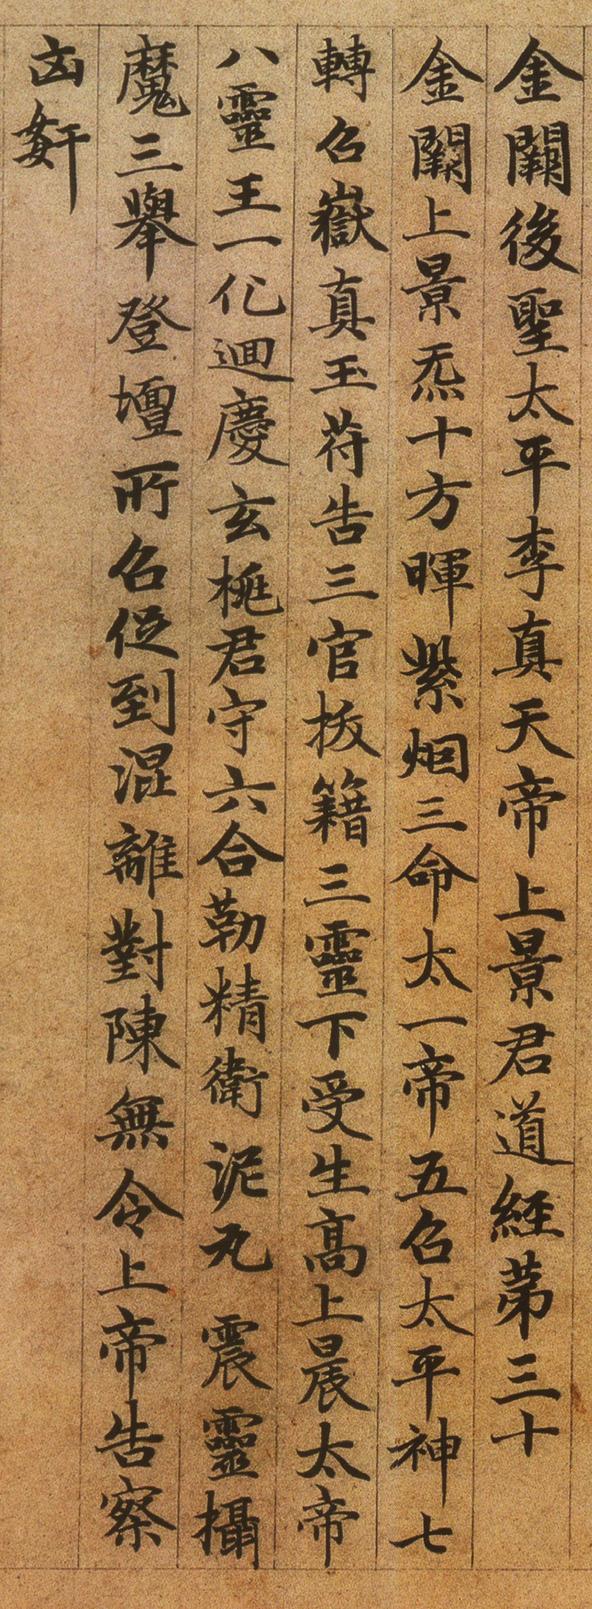 金闕後聖太平李真天帝上景君道經第三十
金闕上景炁十方暉紫烟三命太一帝五召太平神七
轉召嶽真玉苻告三官拔籍三靈下受生高上晨太帝
八靈王一化迴慶玄桃君守六合勒精衛泥丸震靈攝
魔三舉登壇所召促到混離對陳無令上帝告察
凶姧